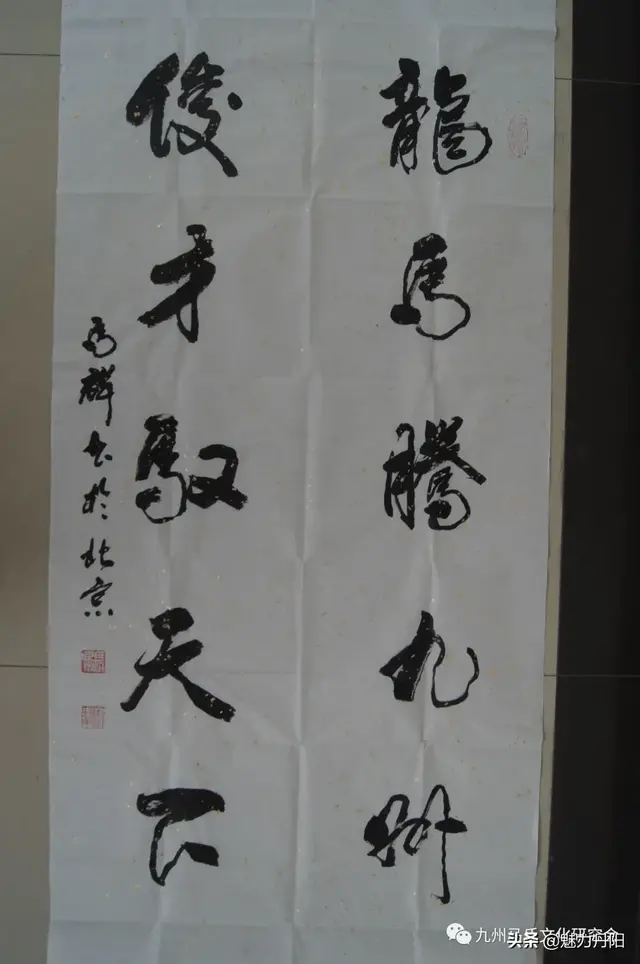 龍馬騰九州
俊才馭天下
馬群書於北京
九州马氏文化研究会
头条@魅力丹阳